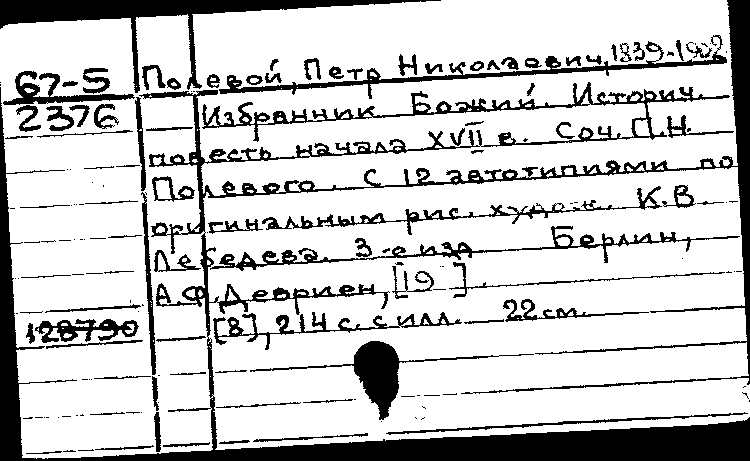 67-5 Полевой, Петр Николаевич, 1839-1902
2376 Избранник Божий. Историч.
повесть начала XVII в. Соч. П.Н.
Полевого. С 12 автотипиями по
оригинальным рис. худож. К.В.
Лебедева. 3-е изд Берлин,
А.Ф. Девриен, [19 ].
128790 [8], 214 с. с илл. 22 см.